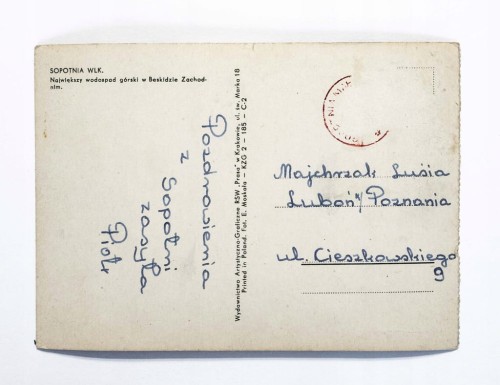 SOPOTNIA WLK.
Największy wodospad górski w Beskidzie Zachod-
nim.
Pozdrowienia
z Sopotni
zasyła
Piotr
Wydawnictwo Artystyczno-Graficzne RSW „Prasa" w Krakowie, ul. św. Marka 18
Printed in Poland. Fot. E. Moskała — KZG 2 — 185 — C-2
Majchrzak Lusia
Luboń k/Poznania
ul. Cieszkowskiego
9